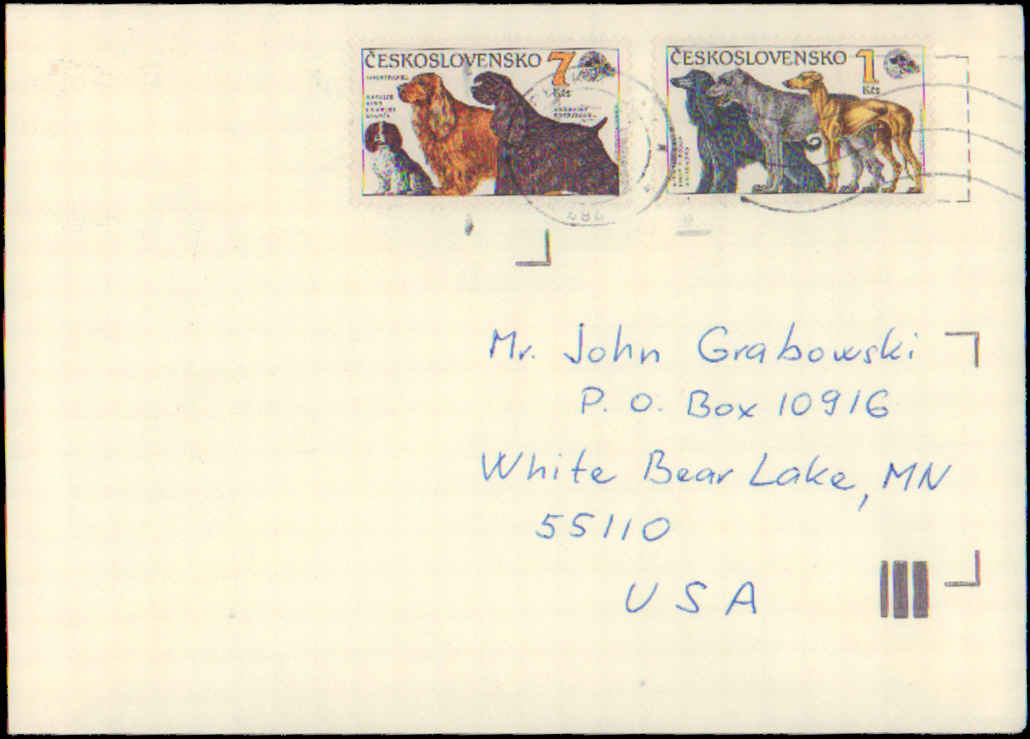 ČESKOSLOVENSKO 7
Kčs
ČESKOSLOVENSKO 1
Kčs
Mr. John Grabowski
P. O. Box 10916
White Bear Lake, MN
55110
USA